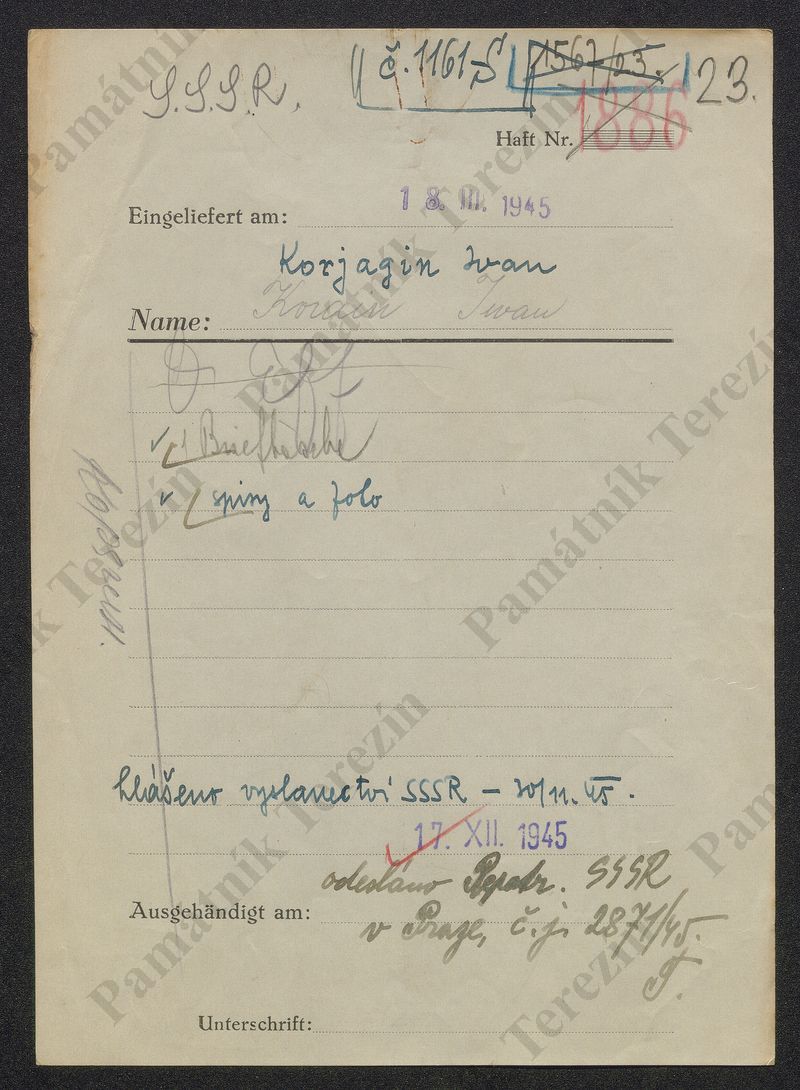 S.S.S.R.
č. 1161-S 1567/23. 23.
Haft Nr. 1886
Eingeliefert am: 18. III. 1945
Korjagin Ivan
Name: Iwan
1 Brieftasche
spisy a foto
hlášeno vyslanectví SSSR – 30/11.45.
17. XII. 1945
odesláno Repatr. SSSR
Ausgehändigt am: v Praze, č.j. 2871/45.
T.
Unterschrift:
Památník Terezín